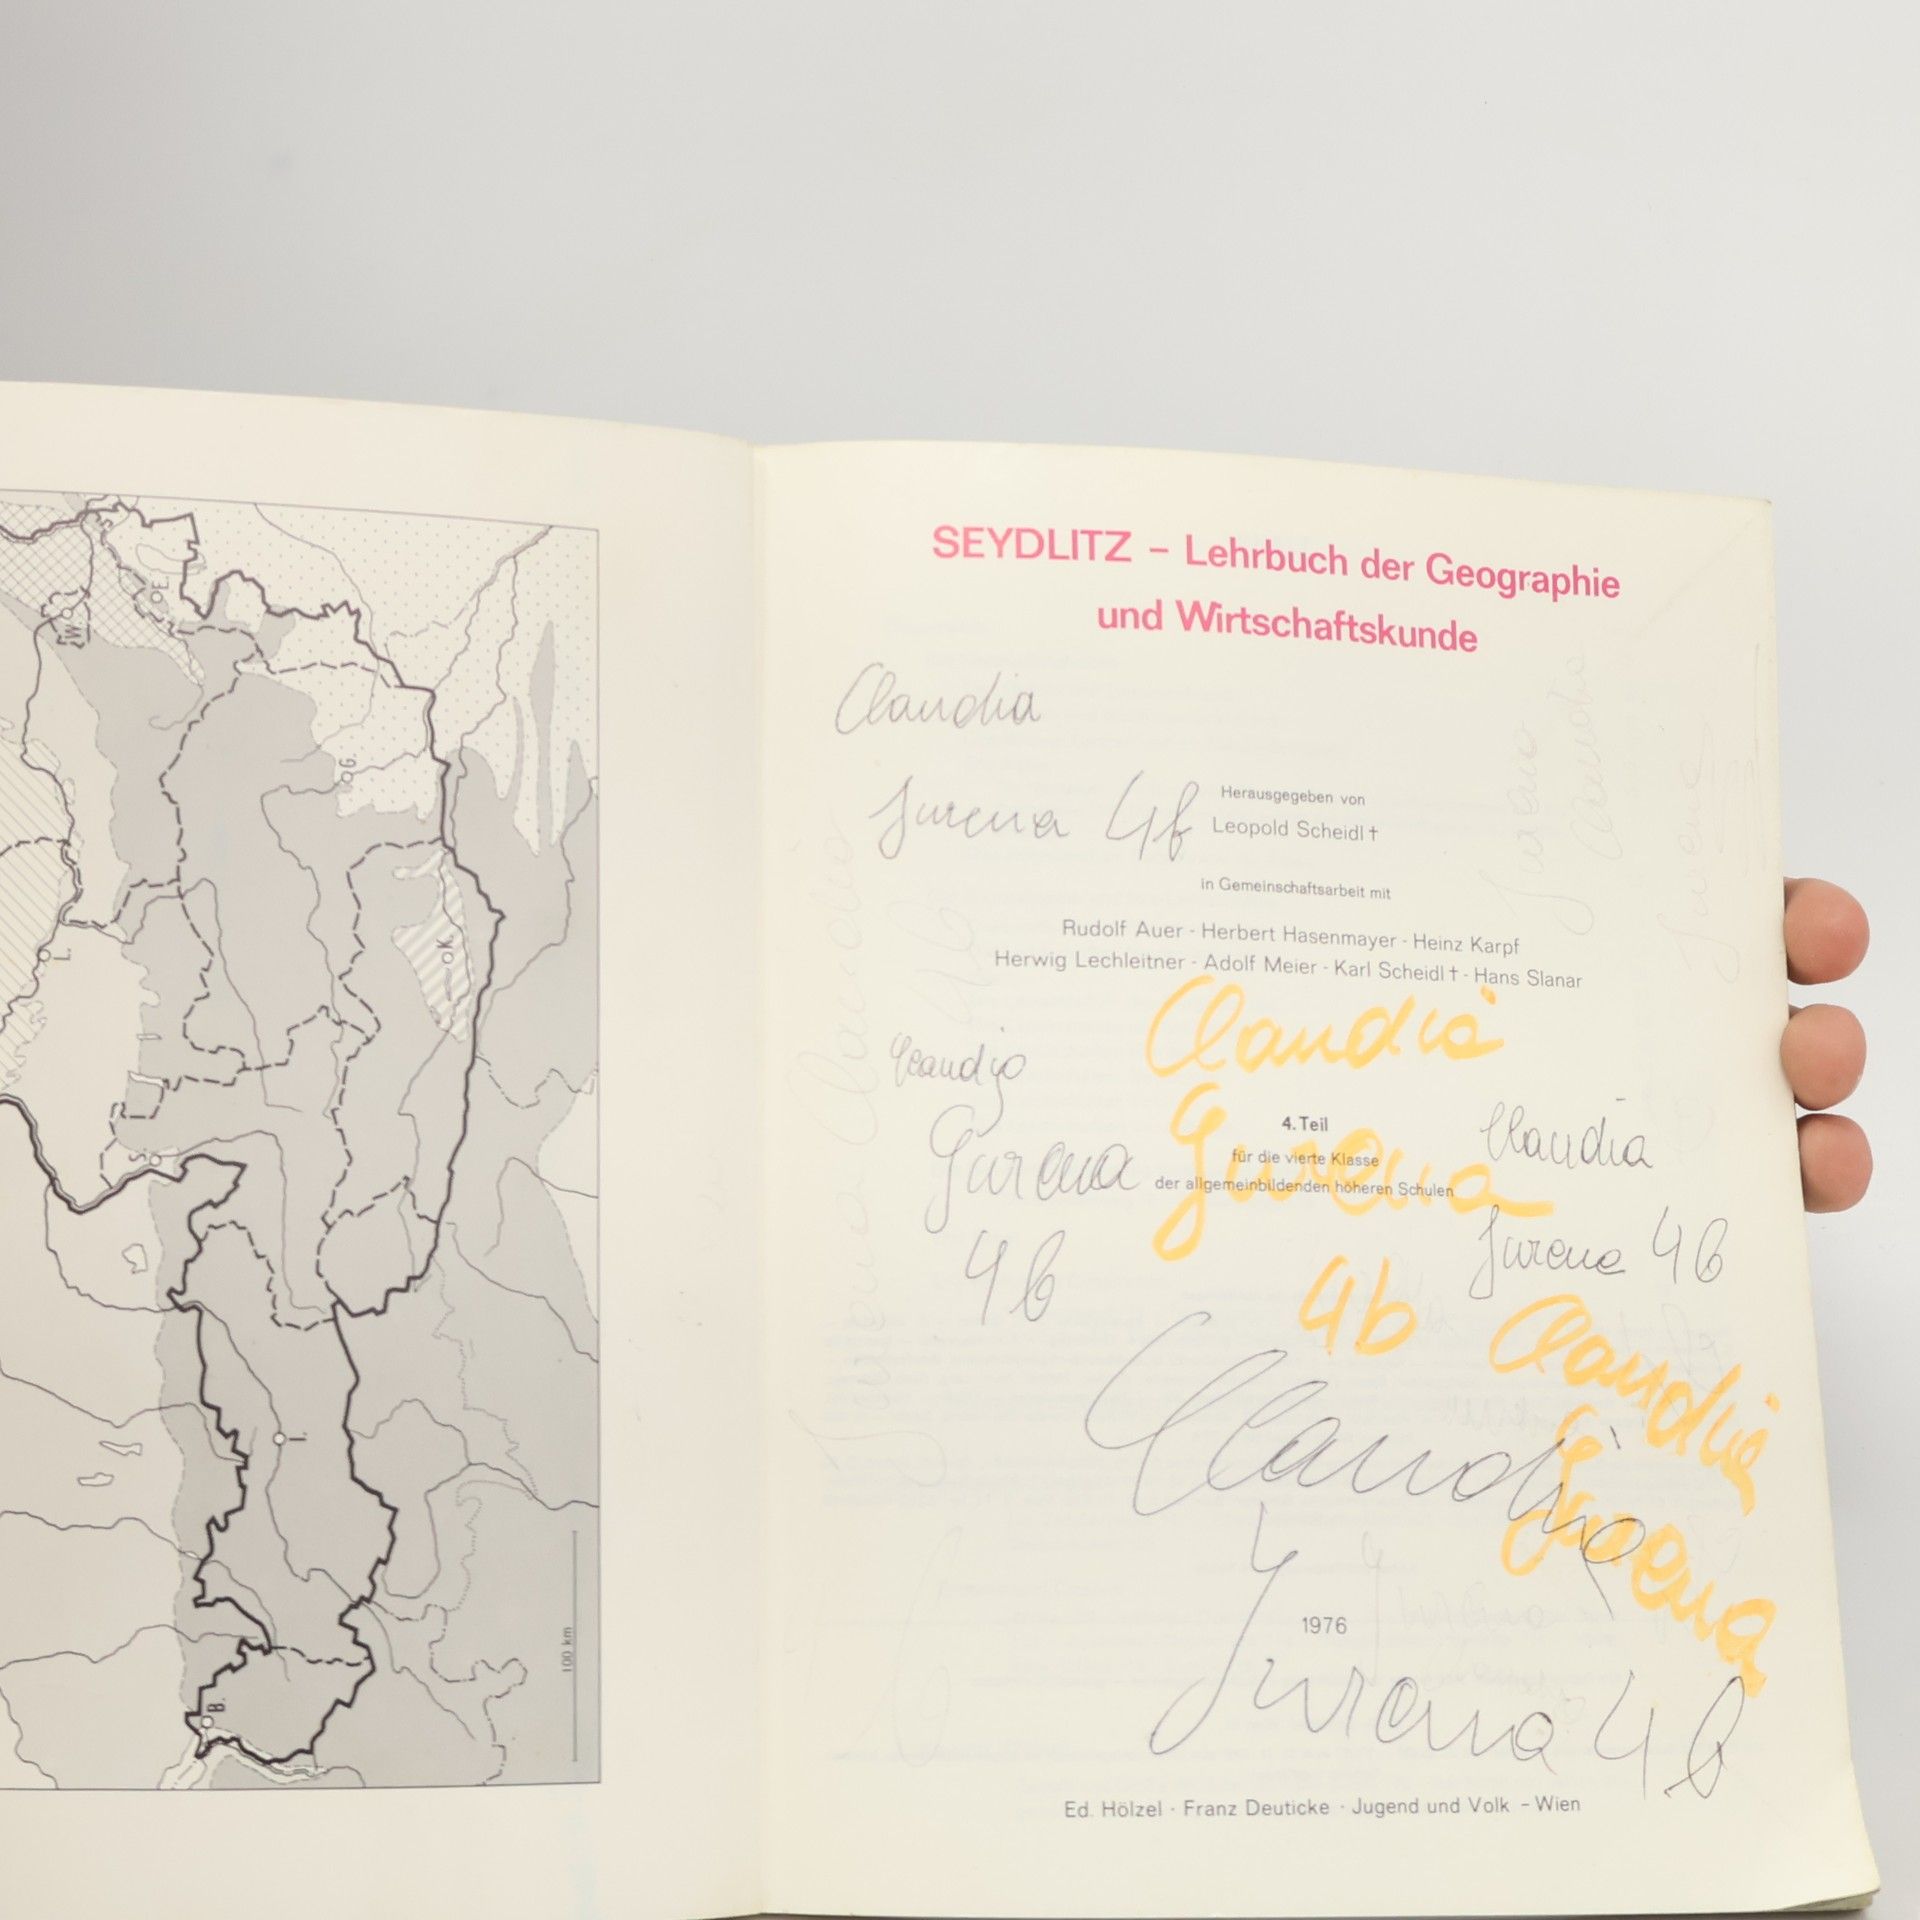 SEYDLITZ – Lehrbuch der Geographie
und Wirtschaftskunde
Claudia
Jurena 4b
Herausgegeben von
Leopold Scheidl †
in Gemeinschaftsarbeit mit
Rudolf Auer · Herbert Hasenmayer · Heinz Karpf
Herwig Lechleitner · Adolf Meier · Karl Scheidl † · Hans Slanar
Claudia
Jurena
4b
Claudia
Jurena
4b
4. Teil
für die vierte Klasse
der allgemeinbildenden höheren Schulen
Claudia
Jurena 4b
Claudia
Jurena
Claudia
Jurena 4b
1976
Ed. Hölzel · Franz Deuticke · Jugend und Volk – Wien
W.
E.
G.
L.
K.
S.
I.
B.
100 km